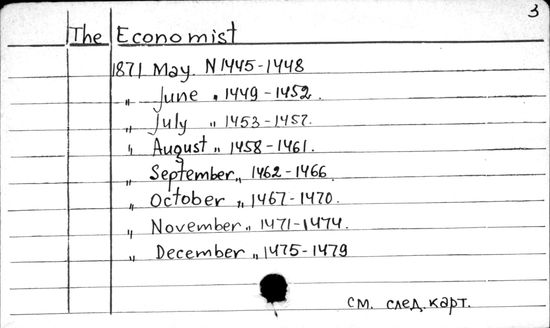 3
The Economist
1871 May. N 1445-1448
„ June „ 1449-1452.
„ July „ 1453-1457.
„ August „ 1458-1461.
„ September „ 1462-1466.
„ October „ 1467-1470.
„ November „ 1471-1474.
„ December „ 1475-1479
см. след. карт.